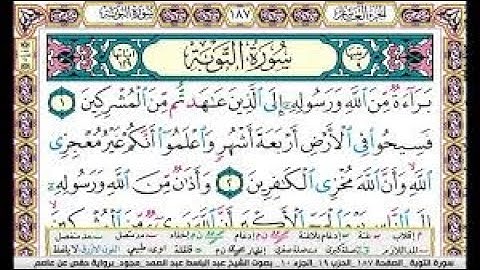 الجزء العاشر ١٨٧ سورة التوبة
سورة التوبة
بَرَآءَةٌ مِّنَ ٱللَّهِ وَرَسُولِهِۦٓ إِلَى ٱلَّذِينَ عَٰهَدتُّم مِّنَ ٱلْمُشْرِكِينَ ١
فَسِيحُوا۟ فِى ٱلْأَرْضِ أَرْبَعَةَ أَشْهُرٍ وَٱعْلَمُوٓا۟ أَنَّكُمْ غَيْرُ مُعْجِزِى
ٱللَّهِ وَأَنَّ ٱللَّهَ مُخْزِى ٱلْكَٰفِرِينَ ٢ وَأَذَٰنٌ مِّنَ ٱللَّهِ وَرَسُولِهِۦٓ
إِلَى ٱلنَّاسِ يَوْمَ ٱلْحَجِّ ٱلْأَكْبَرِ أَنَّ ٱللَّهَ بَرِىٓءٌ مِّنَ ٱلْمُشْرِكِينَ
سورة التوبة _ الصفحة ١٨٧ _ الحزب ١٩ _ الجزء ١٠ _ بصوت الشيخ عبد الباسط عبد الصمد _ مجود _ برواية حفص عن عاصم